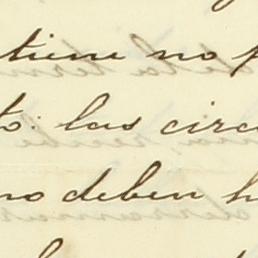 tiene no p
to: las circ
no deben h